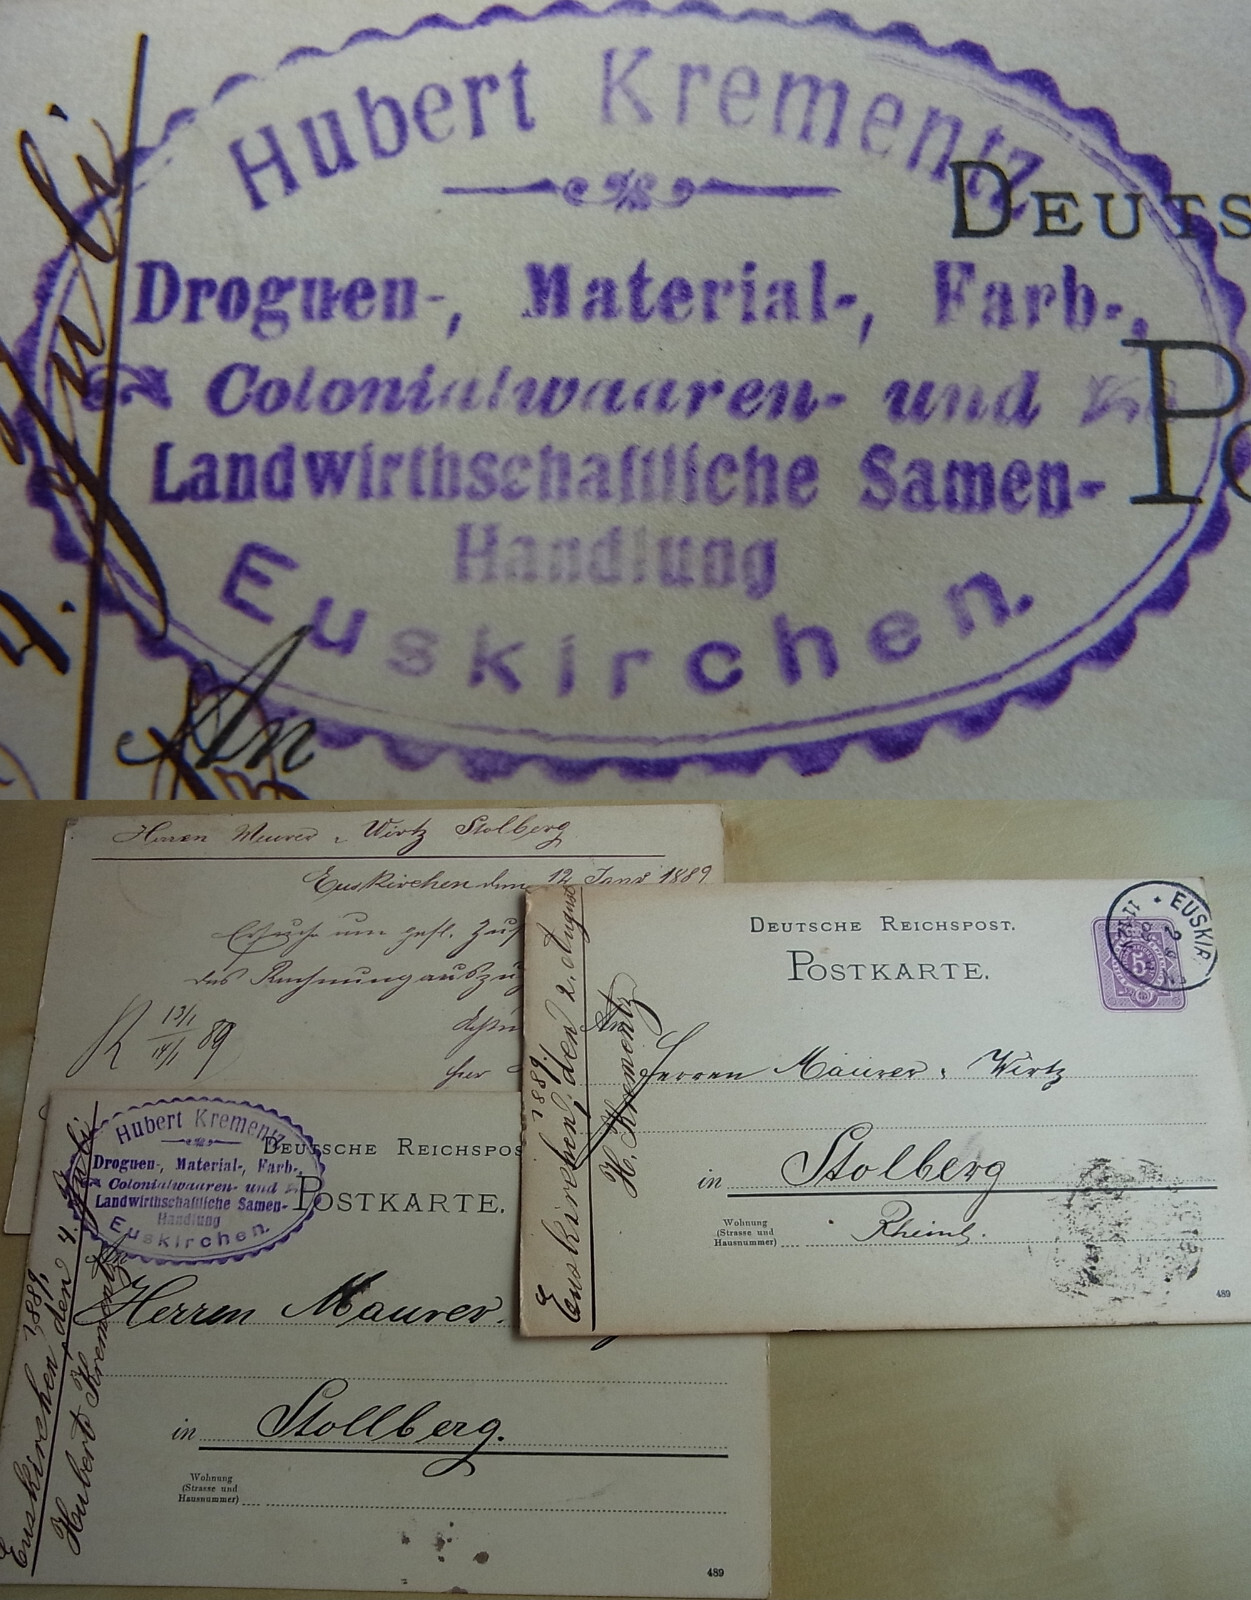 Hubert Krementz
DEUTS
Droguen-, Material-, Farb-,
Colonialwaaren- und
Landwirthschaftliche Samen-
Handlung
Euskirchen.
4. Juli
An
Herren Meurer & Wirtz Stolberg
Euskirchen den 12 Janr 1889
Ersuche um gefl.
das Rechnungsauszu
K 13/1 14/1 89
hier
DEUTSCHE REICHSPOST.
POSTKARTE.
EUSKIR
5
Euskirchen, den 2. August
1889.
H. Krementz
An
Herren Maurer & Wirtz
in Stolberg
Rheinl.
Wohnung
(Strasse und
Hausnummer)
489
Hubert Krementz
Droguen-, Material-, Farb-,
Colonialwaaren- und
Landwirthschaftliche Samen-
Handlung
Euskirchen.
DEUTSCHE REICHSPOS
POSTKARTE.
Euskirchen, den 4. Juli
1889.
Hubert Krementz
An
Herren Maurer
in Stollberg.
Wohnung
(Strasse und
Hausnummer)
489